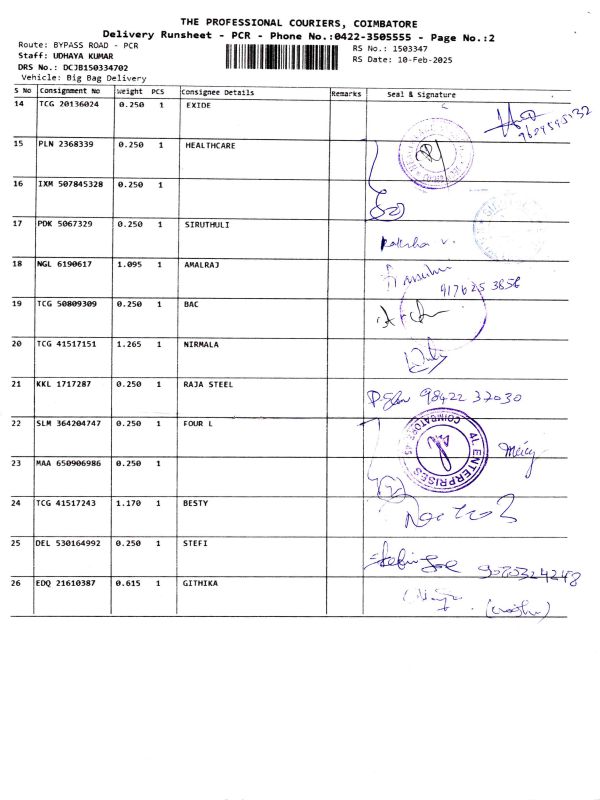 THE PROFESSIONAL COURIERS, COIMBATORE
Delivery Runsheet - PCR - Phone No.:0422-3505555 - Page No.:2
Route: BYPASS ROAD - PCR
RS No.: 1503347
Staff: UDHAYA KUMAR
RS Date: 10-Feb-2025
DRS No.: DCJB150334702
Vehicle: Big Bag Delivery
S No Consignment No Weight PCS Consignee Details Remarks Seal & Signature
14 TCG 20136024 0.250 1 EXIDE
15 PLN 2368339 0.250 1 HEALTHCARE
16 IXM 507845328 0.250 1
17 PDK 5067329 0.250 1 SIRUTHULI
Raksha v.
18 NGL 6190617 1.095 1 AMALRAJ
917625 3856
19 TCG 50809309 0.250 1 BAC
20 TCG 41517151 1.265 1 NIRMALA
21 KKL 1717287 0.250 1 RAJA STEEL
98422 37030
22 SLM 364204747 0.250 1 FOUR L
4L ENTERPRISES COIMBATORE-45
Mercy
23 MAA 650906986 0.250 1
24 TCG 41517243 1.170 1 BESTY
25 DEL 530164992 0.250 1 STEFI
26 EDQ 21610387 0.615 1 GITHIKA